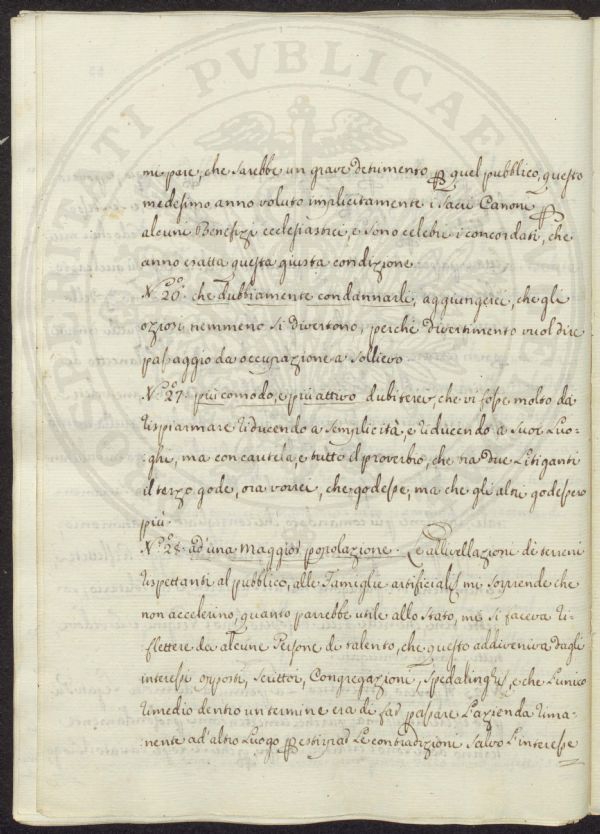 mi pare, che sarebbe un grave detrimento p quel pubblico, questo
medesimo anno voluto implicitamente i Sacri Canoni p
alcuni Benefizi ecclesiastici, e sono celebri i concordati, che
anno esatta questa giusta condizione
N.º 20º. che dubbiamente condannarli, aggiungerei, che gli
oziosi nemmeno si divertono, perche divertimento vuol dire
passaggio da occupazione a sollievo
N.º 27. più comodo, e più attivo dubiterei, che vi fosse molto da
risparmiare riducendo a semplicità, e riducendo a Suoi Luo=
ghi, ma con cautela, e tutto il proverbio, che tra due Litiganti
il terzo gode, ora vorrei, che godesse, ma che gli altri godessero
più.
N.º 28. ad una maggior popolazione. Le allivellazioni di terreni
rispettanti al pubblico, alle Famiglie artificiali mi sorprende che
non accelerino, quanto parrebbe utile allo Stato, mi si faceva ri=
flettere da alcune Persone di talento, che questo addiveniva dagli
interessi opposti, Scrittoi, Congregazione, Spedalinghi, e che l'unico
rimedio dentro un termine era di far passare l'azienda rima=
nente ad altro Luogo p estirpar le contradizioni salvo l'interesse
PROSPERITATI PVBLICAE